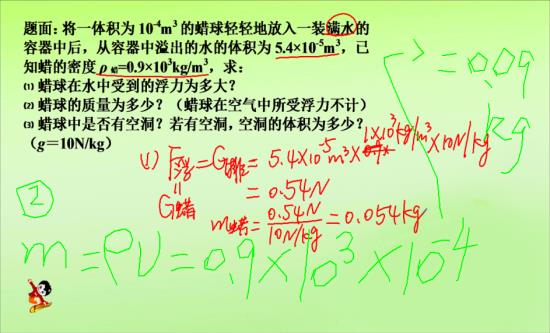 题面：将一体积为 10⁻⁴m³ 的蜡球轻轻地放入一装满水的
容器中后，从容器中溢出的水的体积为 5.4×10⁻⁵m³，已
知蜡的密度ρ蜡=0.9×10³kg/m³，求：
⑴ 蜡球在水中受到的浮力为多大？
⑵ 蜡球的质量为多少？（蜡球在空气中所受浮力不计）
⑶ 蜡球中是否有空洞？若有空洞，空洞的体积为多少？
（g＝10N/kg）
(1) F浮=G排=5.4×10⁻⁵m³×1×10³kg/m³×10N/kg
=0.54N
G蜡
m蜡=0.54N/10N/kg=0.054kg
②
m=ρV=0.9×10³×10⁻⁴
=0.09
kg